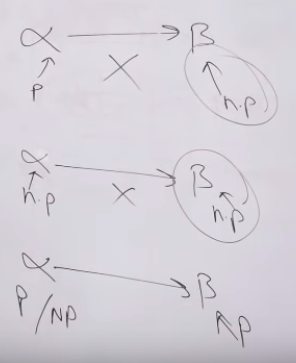 α → β
X
P n.p
α → β
n.p X n.p
α → β
P/NP P